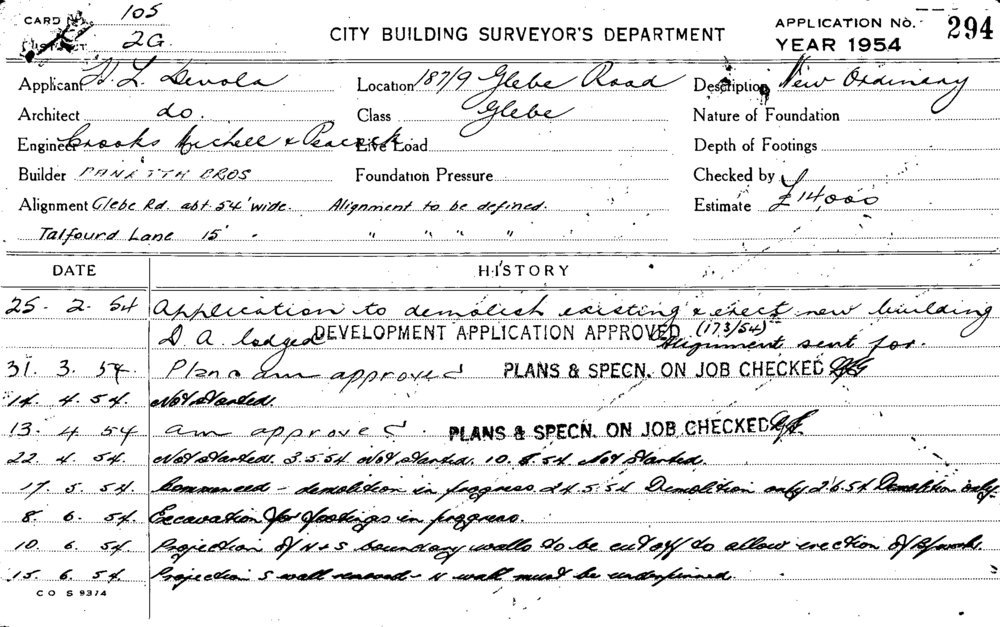 CARD No. 105
DISTRICT 2G.
CITY BUILDING SURVEYOR'S DEPARTMENT
APPLICATION No. 294
YEAR 1954
Applicant H. L. Devola Location 187/9 Glebe Road Description New Ordinary
Architect do. Class Glebe Nature of Foundation
Engineer Crooks Michell & Peacock Live Load Depth of Footings
Builder BROS Foundation Pressure Checked by
Alignment Glebe Rd. abt 54' wide. Alignment to be defined. Estimate £14,000
Talfourd Lane 15' " " " " "
DATE HISTORY
25. 2. 54 Application to demolish existing & erect new building
D A lodged DEVELOPMENT APPLICATION APPROVED (173/54) Alignment sent for.
31. 3. 54 Plan am approved PLANS & SPECN. ON JOB CHECKED
14. 4. 54. Not started.
13. 4 54 am approved. PLANS & SPECN. ON JOB CHECKED
22. 4. 54. Not started. 3.5.54 Not started. 10.5.54 Not started.
17. 5. 54. Commenced - demolition in progress 24.5.54 Demolition only 2.6.54 Demolition only.
8. 6. 54. Excavation for footings in progress.
10. 6. 54. Projection of N & S boundary walls to be cut off to allow erection of B/work.
15. 6. 54. Projection S wall removed - N wall must be underpinned.
CO S 9374